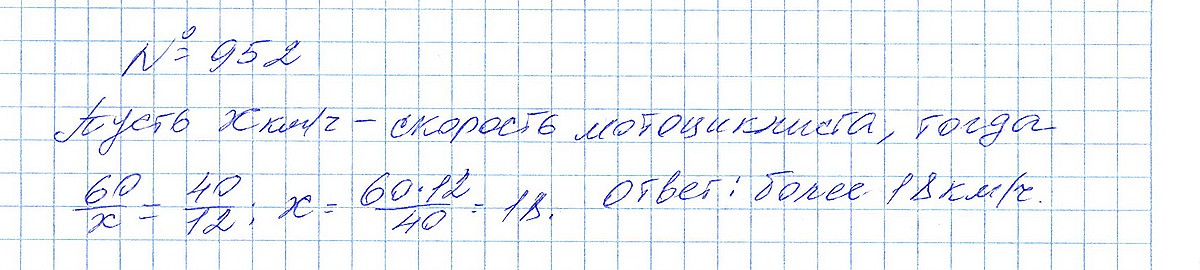 № 952
Пусть x км/ч – скорость мотоциклиста, тогда
60/x = 40/12; x = 60·12/40 = 18. Ответ: более 18 км/ч.